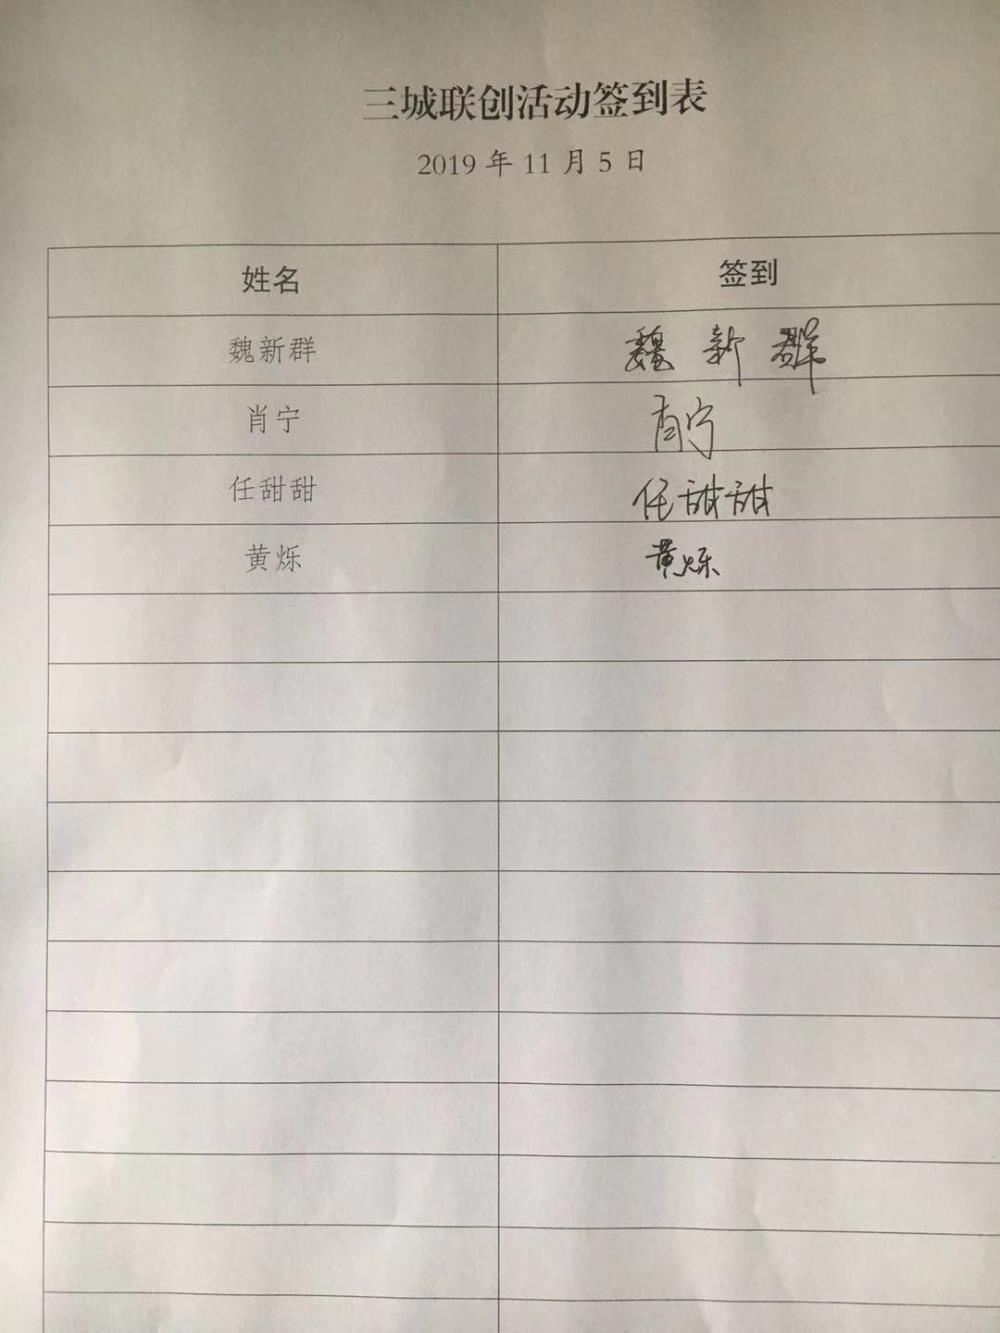 三城联创活动签到表
2019 年 11 月 5 日
姓名 签到
魏新群 魏新群
肖宁 肖宁
任甜甜 任甜甜
黄烁 黄烁